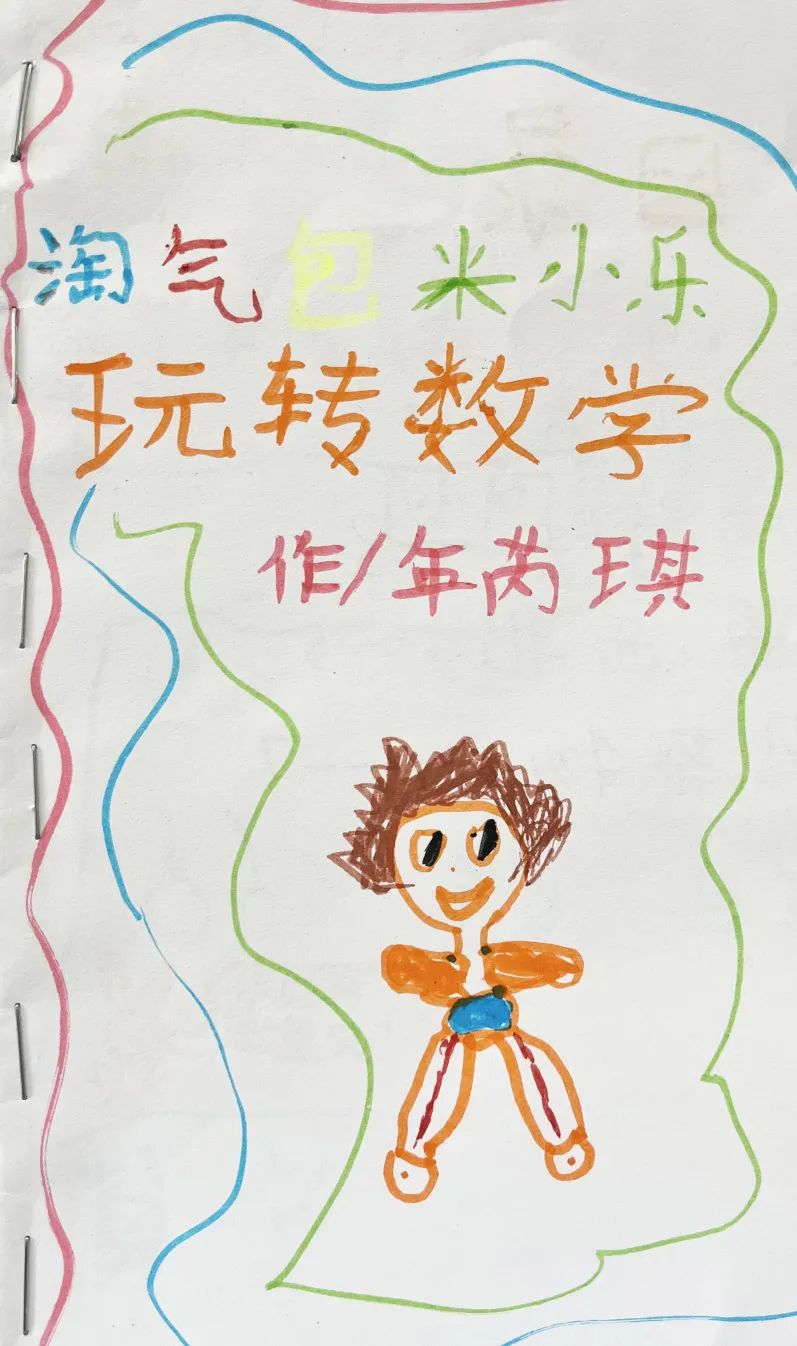 淘气包米小乐
玩转数学
作/年芮琪